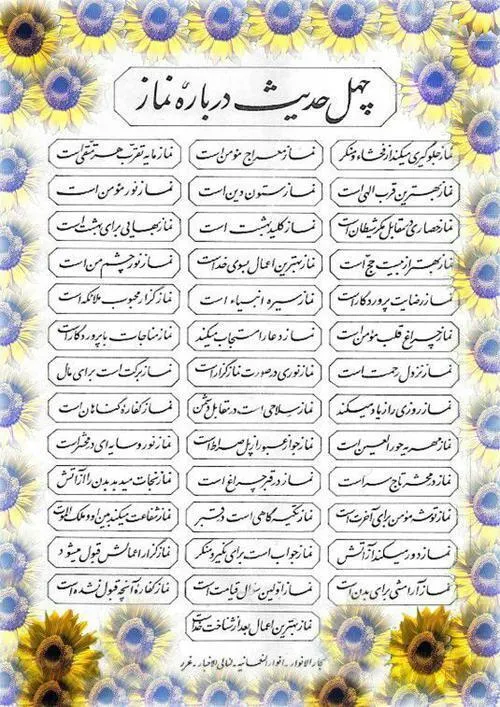 چهل حدیث درباره نماز
نماز جلوگیری میکند از فحشاء و منکر
نماز معراج مؤمن است
نماز مایه تقرب هر متقی است
نماز بهترین قرب الهی است
نماز ستون دین است
نماز نور مؤمن است
نماز حصاری در مقابل مکر شیطان است
نماز کلید بهشت است
نماز بهایی برای بهشت است
نماز بهتر از بیست حج است
نماز بهترین اعمال بسوی خداست
نماز نور چشم من است
نماز رضایت پروردگار است
نماز سیره انبیاء است
نماز گزار محبوب ملائکه است
نماز چراغ قلب مؤمن است
نماز دعا را مستجاب میکند
نماز مناجات با پروردگار است
نماز نزول رحمت است
نماز نوری در صورت نمازگزار است
نماز برکت است برای مال
نماز روزی را زیاد میکند
نماز سلاحی است در مقابل دشمن
نماز کفاره گناهان است
نماز مهریه حورالعین است
نماز جواز عبور از پل صراط است
نماز نور و سایه ای در محشر است
نماز در محشر تاج سر است
نماز در قبر چراغ است
نماز نجات میدهد بدن را از آتش
نماز توشه مؤمن برای آخرت است
نماز تکیه گاهی است در قبر
نماز شفاعت میکند بین او و ملک الموت
نماز دور میکند از آتش
نماز جواب است برای نکیر و منکر
نمازگزار اعمالش قبول میشود
نماز آرامشی برای بدن است
نماز اولین سؤال قیامت است
نماز کفاره آنچه قبول نشده است
نماز بهترین اعمال بعد از شناخت خداست
بحار الانوار - انوار النعمانیه - لئالی الاخبار - غرر